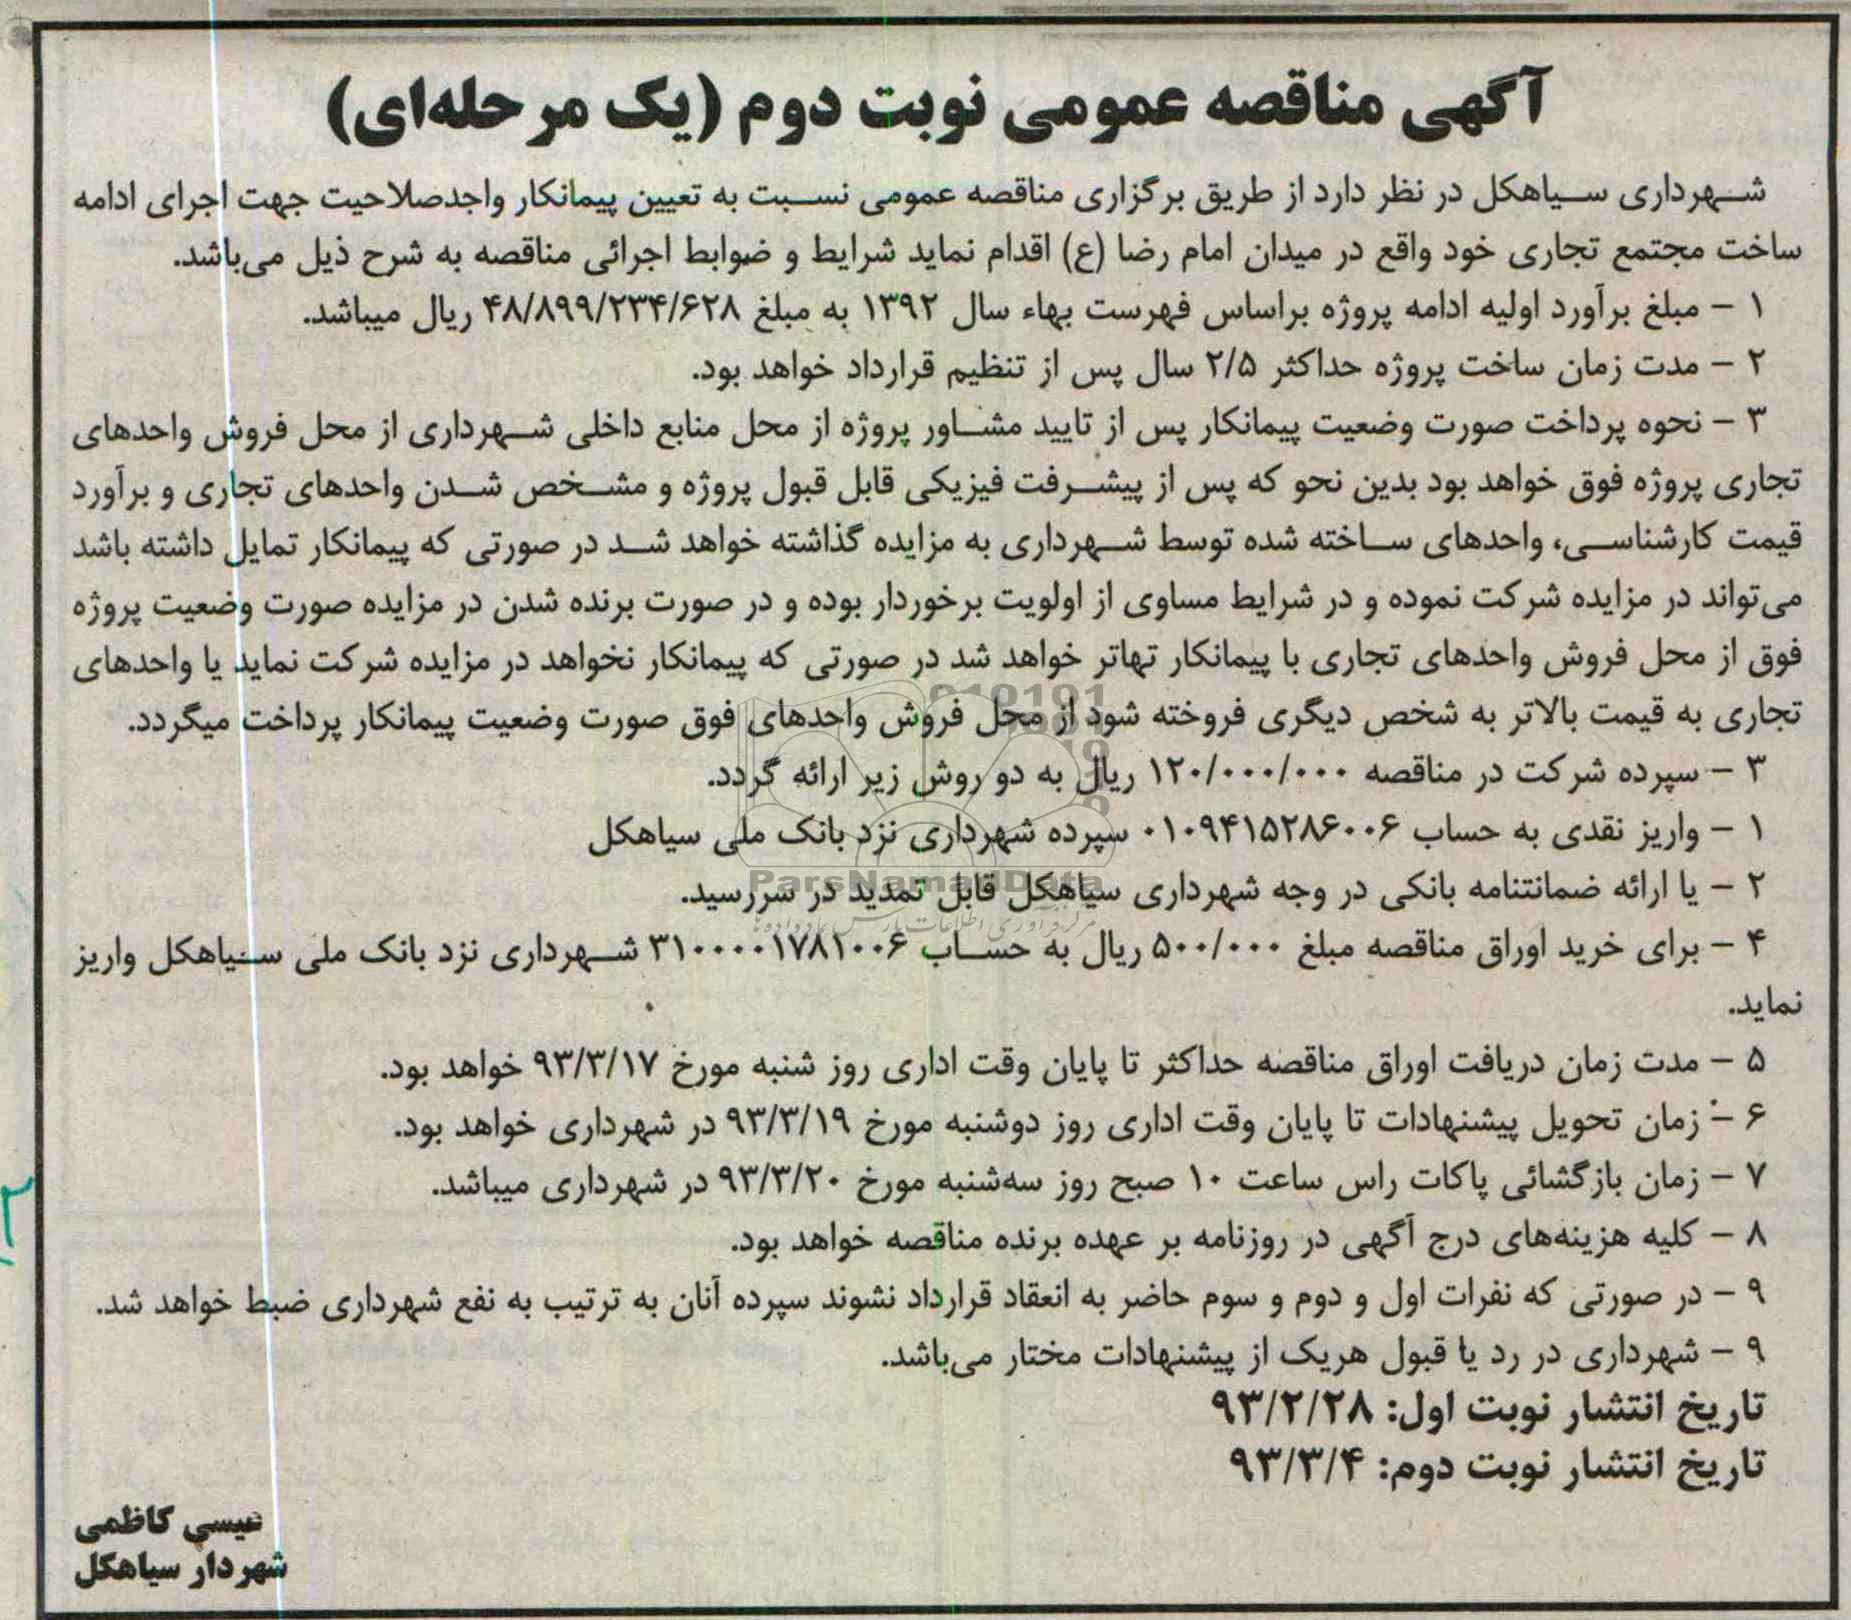 آگهی مناقصه عمومی نوبت دوم (یک مرحله‌ای)
شهرداری سیاهکل در نظر دارد از طریق برگزاری مناقصه عمومی نسبت به تعیین پیمانکار واجدصلاحیت جهت اجرای ادامه
ساخت مجتمع تجاری خود واقع در میدان امام رضا (ع) اقدام نماید شرایط و ضوابط اجرائی مناقصه به شرح ذیل می‌باشد.
۱ – مبلغ برآورد اولیه ادامه پروژه براساس فهرست بهاء سال ۱۳۹۲ به مبلغ ۴۸/۸۹۹/۲۳۴/۶۲۸ ریال میباشد.
۲ – مدت زمان ساخت پروژه حداکثر ۲/۵ سال پس از تنظیم قرارداد خواهد بود.
۳ – نحوه پرداخت صورت وضعیت پیمانکار پس از تایید مشاور پروژه از محل منابع داخلی شهرداری از محل فروش واحدهای
تجاری پروژه فوق خواهد بود بدین نحو که پس از پیشرفت فیزیکی قابل قبول پروژه و مشخص شدن واحدهای تجاری و برآورد
قیمت کارشناسی، واحدهای ساخته شده توسط شهرداری به مزایده گذاشته خواهد شد در صورتی که پیمانکار تمایل داشته باشد
می‌تواند در مزایده شرکت نموده و در شرایط مساوی از اولویت برخوردار بوده و در صورت برنده شدن در مزایده صورت وضعیت پروژه
فوق از محل فروش واحدهای تجاری با پیمانکار تهاتر خواهد شد در صورتی که پیمانکار نخواهد در مزایده شرکت نماید یا واحدهای
تجاری به قیمت بالاتر به شخص دیگری فروخته شود از محل فروش واحدهای فوق صورت وضعیت پیمانکار پرداخت میگردد.
۳ – سپرده شرکت در مناقصه ۱۲۰/۰۰۰/۰۰۰ ریال به دو روش زیر ارائه گردد.
۱ – واریز نقدی به حساب ۰۱۰۹۴۱۵۲۸۶۰۰۶ سپرده شهرداری نزد بانک ملی سیاهکل
ParsNamadData
۲ – یا ارائه ضمانتنامه بانکی در وجه شهرداری سیاهکل قابل تمدید در سررسید.
۴ – برای خرید اوراق مناقصه مبلغ ۵۰۰/۰۰۰ ریال به حساب ۳۱۰۰۰۰۱۷۸۱۰۰۶ شهرداری نزد بانک ملی سیاهکل واریز
نماید.
۵ – مدت زمان دریافت اوراق مناقصه حداکثر تا پایان وقت اداری روز شنبه مورخ ۹۳/۳/۱۷ خواهد بود.
۶ – زمان تحویل پیشنهادات تا پایان وقت اداری روز دوشنبه مورخ ۹۳/۳/۱۹ در شهرداری خواهد بود.
۷ – زمان بازگشائی پاکات راس ساعت ۱۰ صبح روز سه‌شنبه مورخ ۹۳/۳/۲۰ در شهرداری میباشد.
۸ – کلیه هزینه‌های درج آگهی در روزنامه بر عهده برنده مناقصه خواهد بود.
۹ – در صورتی که نفرات اول و دوم و سوم حاضر به انعقاد قرارداد نشوند سپرده آنان به ترتیب به نفع شهرداری ضبط خواهد شد.
۹ – شهرداری در رد یا قبول هریک از پیشنهادات مختار می‌باشد.
تاریخ انتشار نوبت اول: ۹۳/۲/۲۸
تاریخ انتشار نوبت دوم: ۹۳/۳/۴
عیسی کاظمی
شهردار سیاهکل